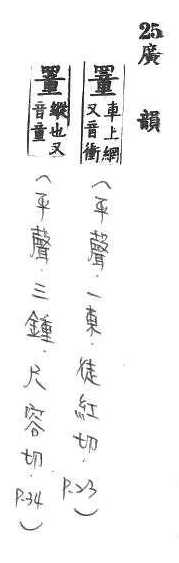 25.廣韻
罿 車上網又音衝 (平聲.一東.徒紅切. P.23)
罿 縱也又音童 (平聲.三鍾.尺容切. P.34)